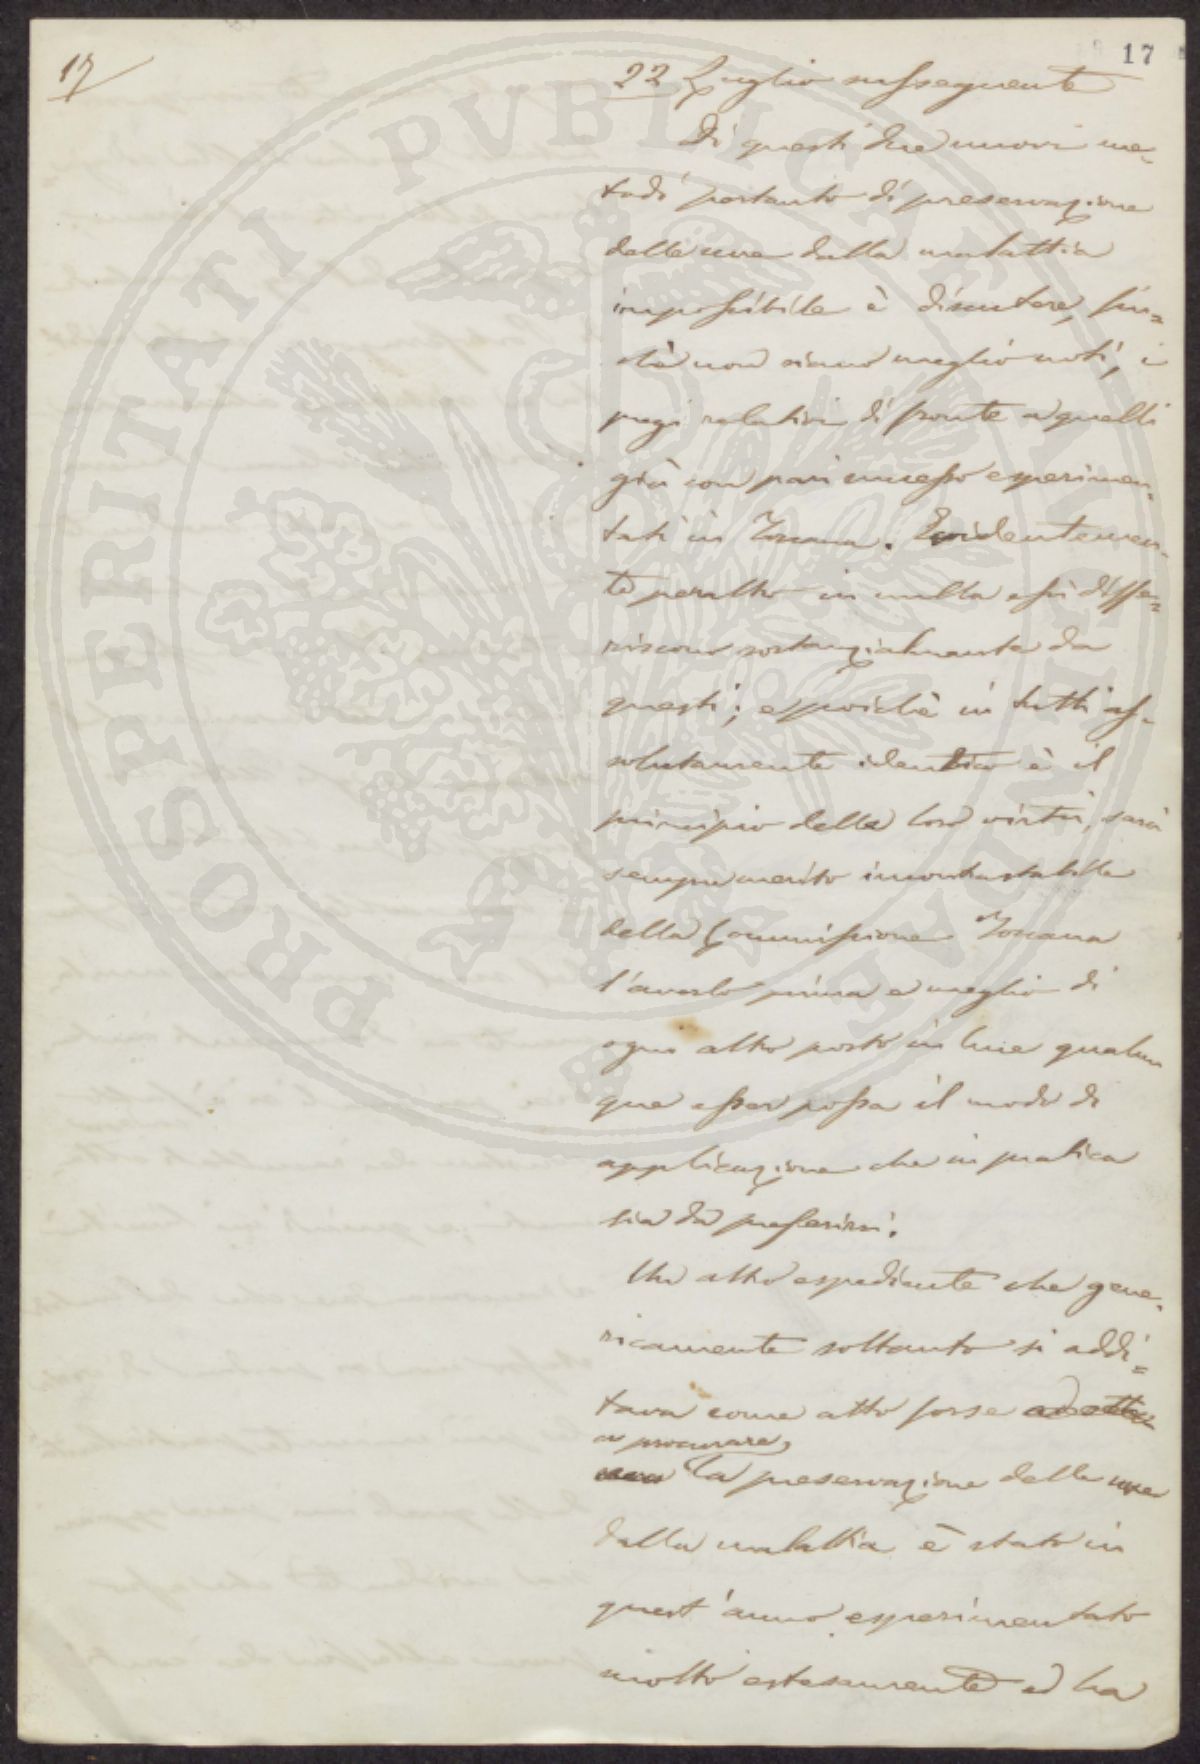 17
17
22 Luglio susseguente
Di questi due nuovi me-
todi pertanto di preservazione
delle uve dalla malattia
impossibile è discutere, fin=
chè non siano meglio noti, i
pregi relativi di fronte a quelli
già con pari successo esperimen-
tati in Toscana. Evidentemen-
te peraltro in nulla essi diffe=
riscono sostanzialmente da
questi; e poichè in tutti as-
solutamente identico è il
principio delle loro virtù, sarà
sempre merito incontrastabile
della Commissione Toscana
l'averlo prima e meglio di
ogni altro posto in luce qualun
que esser possa il modo di
applicazione che in pratica
sia da preferirsi.
Un altro espediente che gene-
ricamente soltanto si addi=
tava come atto forse
a procurare,
la preservazione delle uve
dalla malattia è stato in
quest'anno esperimentato
molto estesamente ed ha
PROSPERITATI PVBLICAE AVGENDAE